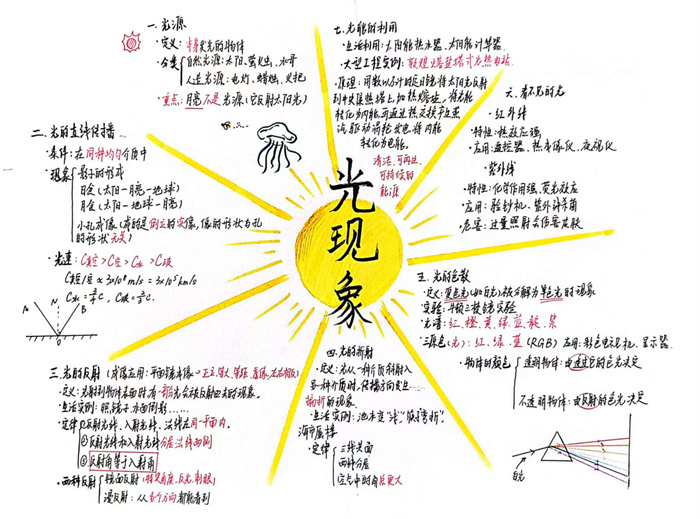 光现象
一.光源
·定义: 自身发光的物体
·分类 自然光源:太阳、萤火虫、水母
人造光源:电灯、蜡烛、火把
·重点: 月亮不是光源(它反射太阳光)
二.光的直线传播
·条件: 在同种均匀介质中
·现象 影子的形成
日食(太阳-月亮-地球)
月食(太阳-地球-月亮)
小孔成像(成的是倒立的实像,像的形状与孔
的形状无关)
·光速: C真空>C空>C水>C玻
C真空/空≈3×10⁸m/s=3×10⁵km/s
C水=¾C, C玻=⅔C.
A N B
O
三.光的反射
·定义:光射到物体表面时,有一部分光会被反射回去的现象。
·生活实例: 照镜子、水面倒影……
·定律 反射光线、入射光线、法线在同一平面内。
②反射光线和入射光线分居法线两侧
③反射角等于入射角
·两种反射 镜面反射
漫反射: 从各个方向都能看到
四.光的折射
·定义:光从一种介质斜射入
另一种介质时,传播方向发生
偏折的现象。
·生活实例: 池水变“浅”、筷子“弯折”
海市蜃楼
·定律 三线共面
两种分居
空气中的角度更大
五.光的色散
·定义:复色光(如白光)被分解为单色光的现象
实验: 牛顿三棱镜实验
·光谱: 红、橙、黄、绿、蓝、靛、紫
·三原色(光): 红、绿、蓝(RGB) 应用:彩色电视机、显示器.
·物体的颜色 透明物体: 由透过它的色光决定
不透明物体: 由反射的色光决定
白光
六.看不见的光
·红外线
·特性: 热效应强
·应用: 遥控器、热成像仪、夜视仪
·紫外线
·特性: 化学作用强、荧光效应
·应用: 验钞机、紫外杀菌
·危害: 过量照射会伤害皮肤
七.光能的利用
·生活利用:太阳能热水器、太阳能计算器.
·大型工程实例: 敦煌熔盐塔式光热电站
·原理: 用数以万计的定日镜将太阳光反射
到中央集热塔上,加热熔盐,将光能
转化为内能,可通过热交换产生蒸
汽驱动涡轮发电,将内能
转化为电能。
清洁、可再生、
可持续的
能源